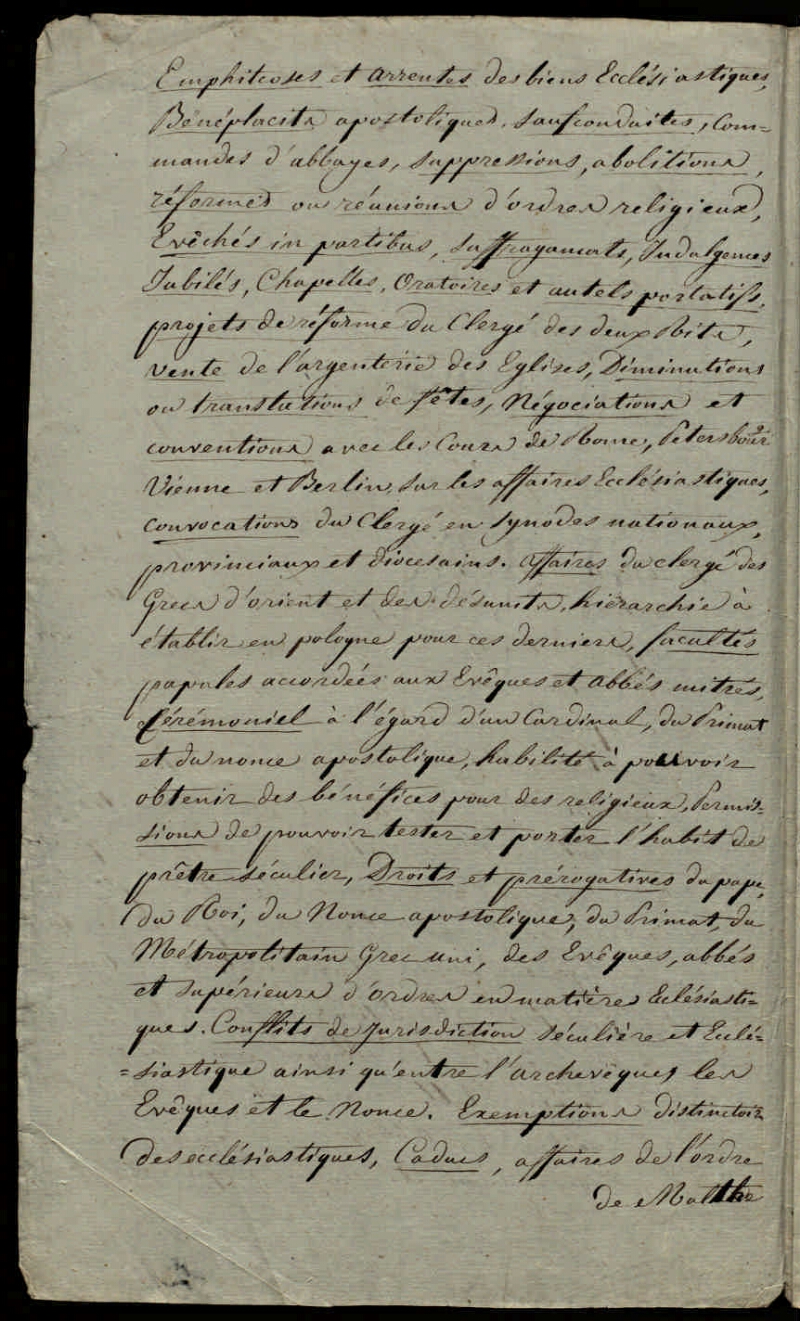 Emphitéoses et arrentes des biens Ecclésiastiques,
Bénéplacita apostoliques, Saufconduites, Com-
mandes d'abbayes, suppressions, abolitions,
réformes ou réunions d'ordres religieux,
Evêchés in partibus, Suffragants, Indulgences
Jubilés, Chapelles, Oratoires et autels portatifs,
projets de réforme du Clergé des deux rits,
vente de l'argenterie des Eglises, Diminutions
ou translations de fêtes, Négociations et
conventions avec les Cours de Rome, Petersbour
Vienne et Berlin, sur les affaires Ecclésiastiques,
Convocations du Clergé en Synodes nationaux,
provinciaux et diocesains. affaires du clergé des
Grecs d'orient et des désunits, hiérarchie à
établir en pologne pour ces derniers, facultés
papales accordées aux Evêques et Abbés mitrés,
Cérémoniel à l'égard d'un Cardinal, du Primat
et du nonce apostolique, habilité à pouvoir
obtenir des bénéfices pour des religieux, Permis-
sions de pouvoir tester et porter l'habit de
prêtre séculier, Droits et prérogatives du pape
du Roi, du Nonce apostolique, du Primat, du
Métropolitain Grec uni, des Evêques, abbés
et supérieurs d'ordres en matières Eclésiasti-
ques. Conflits de Jurisdiction séculière et Ecclé-
=siastique ainsi qu'entre l'archevêques les
Evêques et le Nonce. Exemptions
des ecclésiastiques, Caducs, affaires de l'ordre
de Malthe